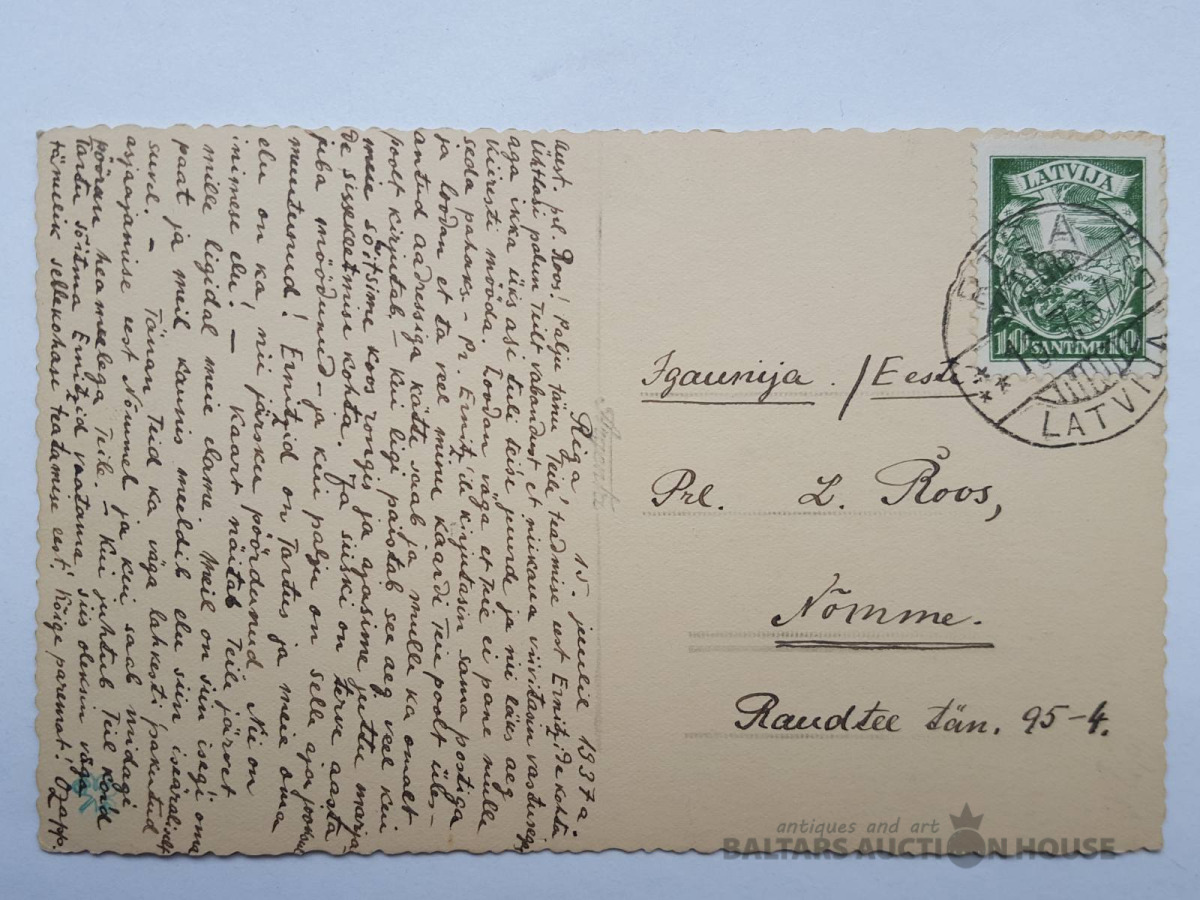 Riga, 15. juulil 1937 a
Aust. prl. Roos! Palju tänu Teile teadmise eest Ernitzide kohta
Ühtlasi palun Teilt vabandust et niikaua viivitasin vastusega
aga ikka üks asi tuli teise juurde ja nii läks aeg
kiiresti mööda. Loodan väga et Teie ei pane mulle
seda pahaks. – Pr. Ernitz'ile kirjutasin sama postiga
ja loodan et ta veel minu kaardi Teie poolt üles-
antud aadressiga kätte saab ja mulle ka omalt
poolt kirjutab. – Kui ligi paistab see aeg veel kui
meie sõitsime koos rongis ja ajasime juttu marja-
de sissekeetmise kohta. Ja siiski on terve aasta
juba möödunud – ja kui palju on selle aja jooksul
muutunud! Ernitzid on Tartus ja meie oma
elu on ka nii järsku pöördunud. Nii on
inimese elu! – Kaart näitab Teile järvet
mille ligidal meie elame. Meil on siin isegi oma
paat ja meil kaunis meeldib elu siin iseäraliselt
suvel. – Tänan Teid ka väga lahkesti pakutud
asjaajamise eest Nõmmel ja kui saab midagi
pööran heameelega Teile. – Kui juhtub Teil kord
Tartu sõitma Ernitzid vaatama, siis oleksin väga
tänulik sellekohase teatamise eest! Kõige paremat!
LATVIJA
10 SANTIMU 10
RIGA
LATVIJA
Igaunija. / Eesti.
Prl. L. Roos,
Nõmme.
Raudtee tän. 95-4.
antiques and art
BALTARS AUCTION HOUSE